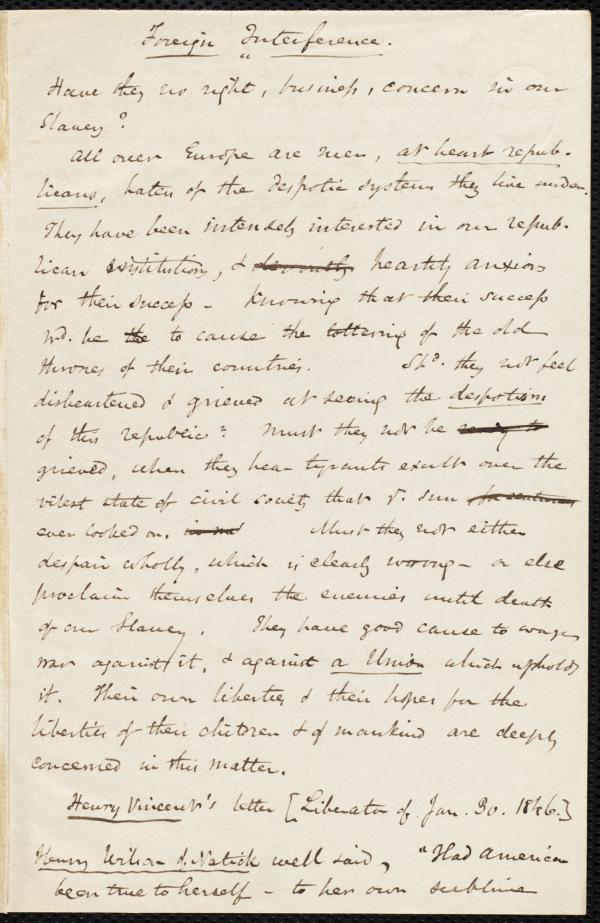 Foreign "Interference.
Have they no right, business, concern in our
Slavery?
All over Europe are men, at heart repub-
licans, haters of the despotic systems they live under.
They have been intensely interested in our repub-
lican institutions, & devoutly heartily anxious
for their success - Knowing that their success
wd. be the to cause the tottering of the old
thrones of their countries. Shd. they not feel
disheartened & grieved at seeing the despotism
of this republic? Must they not be ready to
grieved, when they hear tyrants exult over the
vilest state of civil society that ye. sun for centuries
ever looked on. Must they not either
despair wholly, which is clearly wrong - or else
proclaim themselves the enemies until death
of our Slavery. They have good cause to wage
war against it, & against a Union which upholds
it. Their own liberties & their hopes for the
liberties of their children & of mankind are deeply
concerned in this matter.
Henry Vincent's letter [Liberator of Jan. 30. 1846.]
Henry Wilson of Natick well said, "Had America
been true to herself - to her own sublime